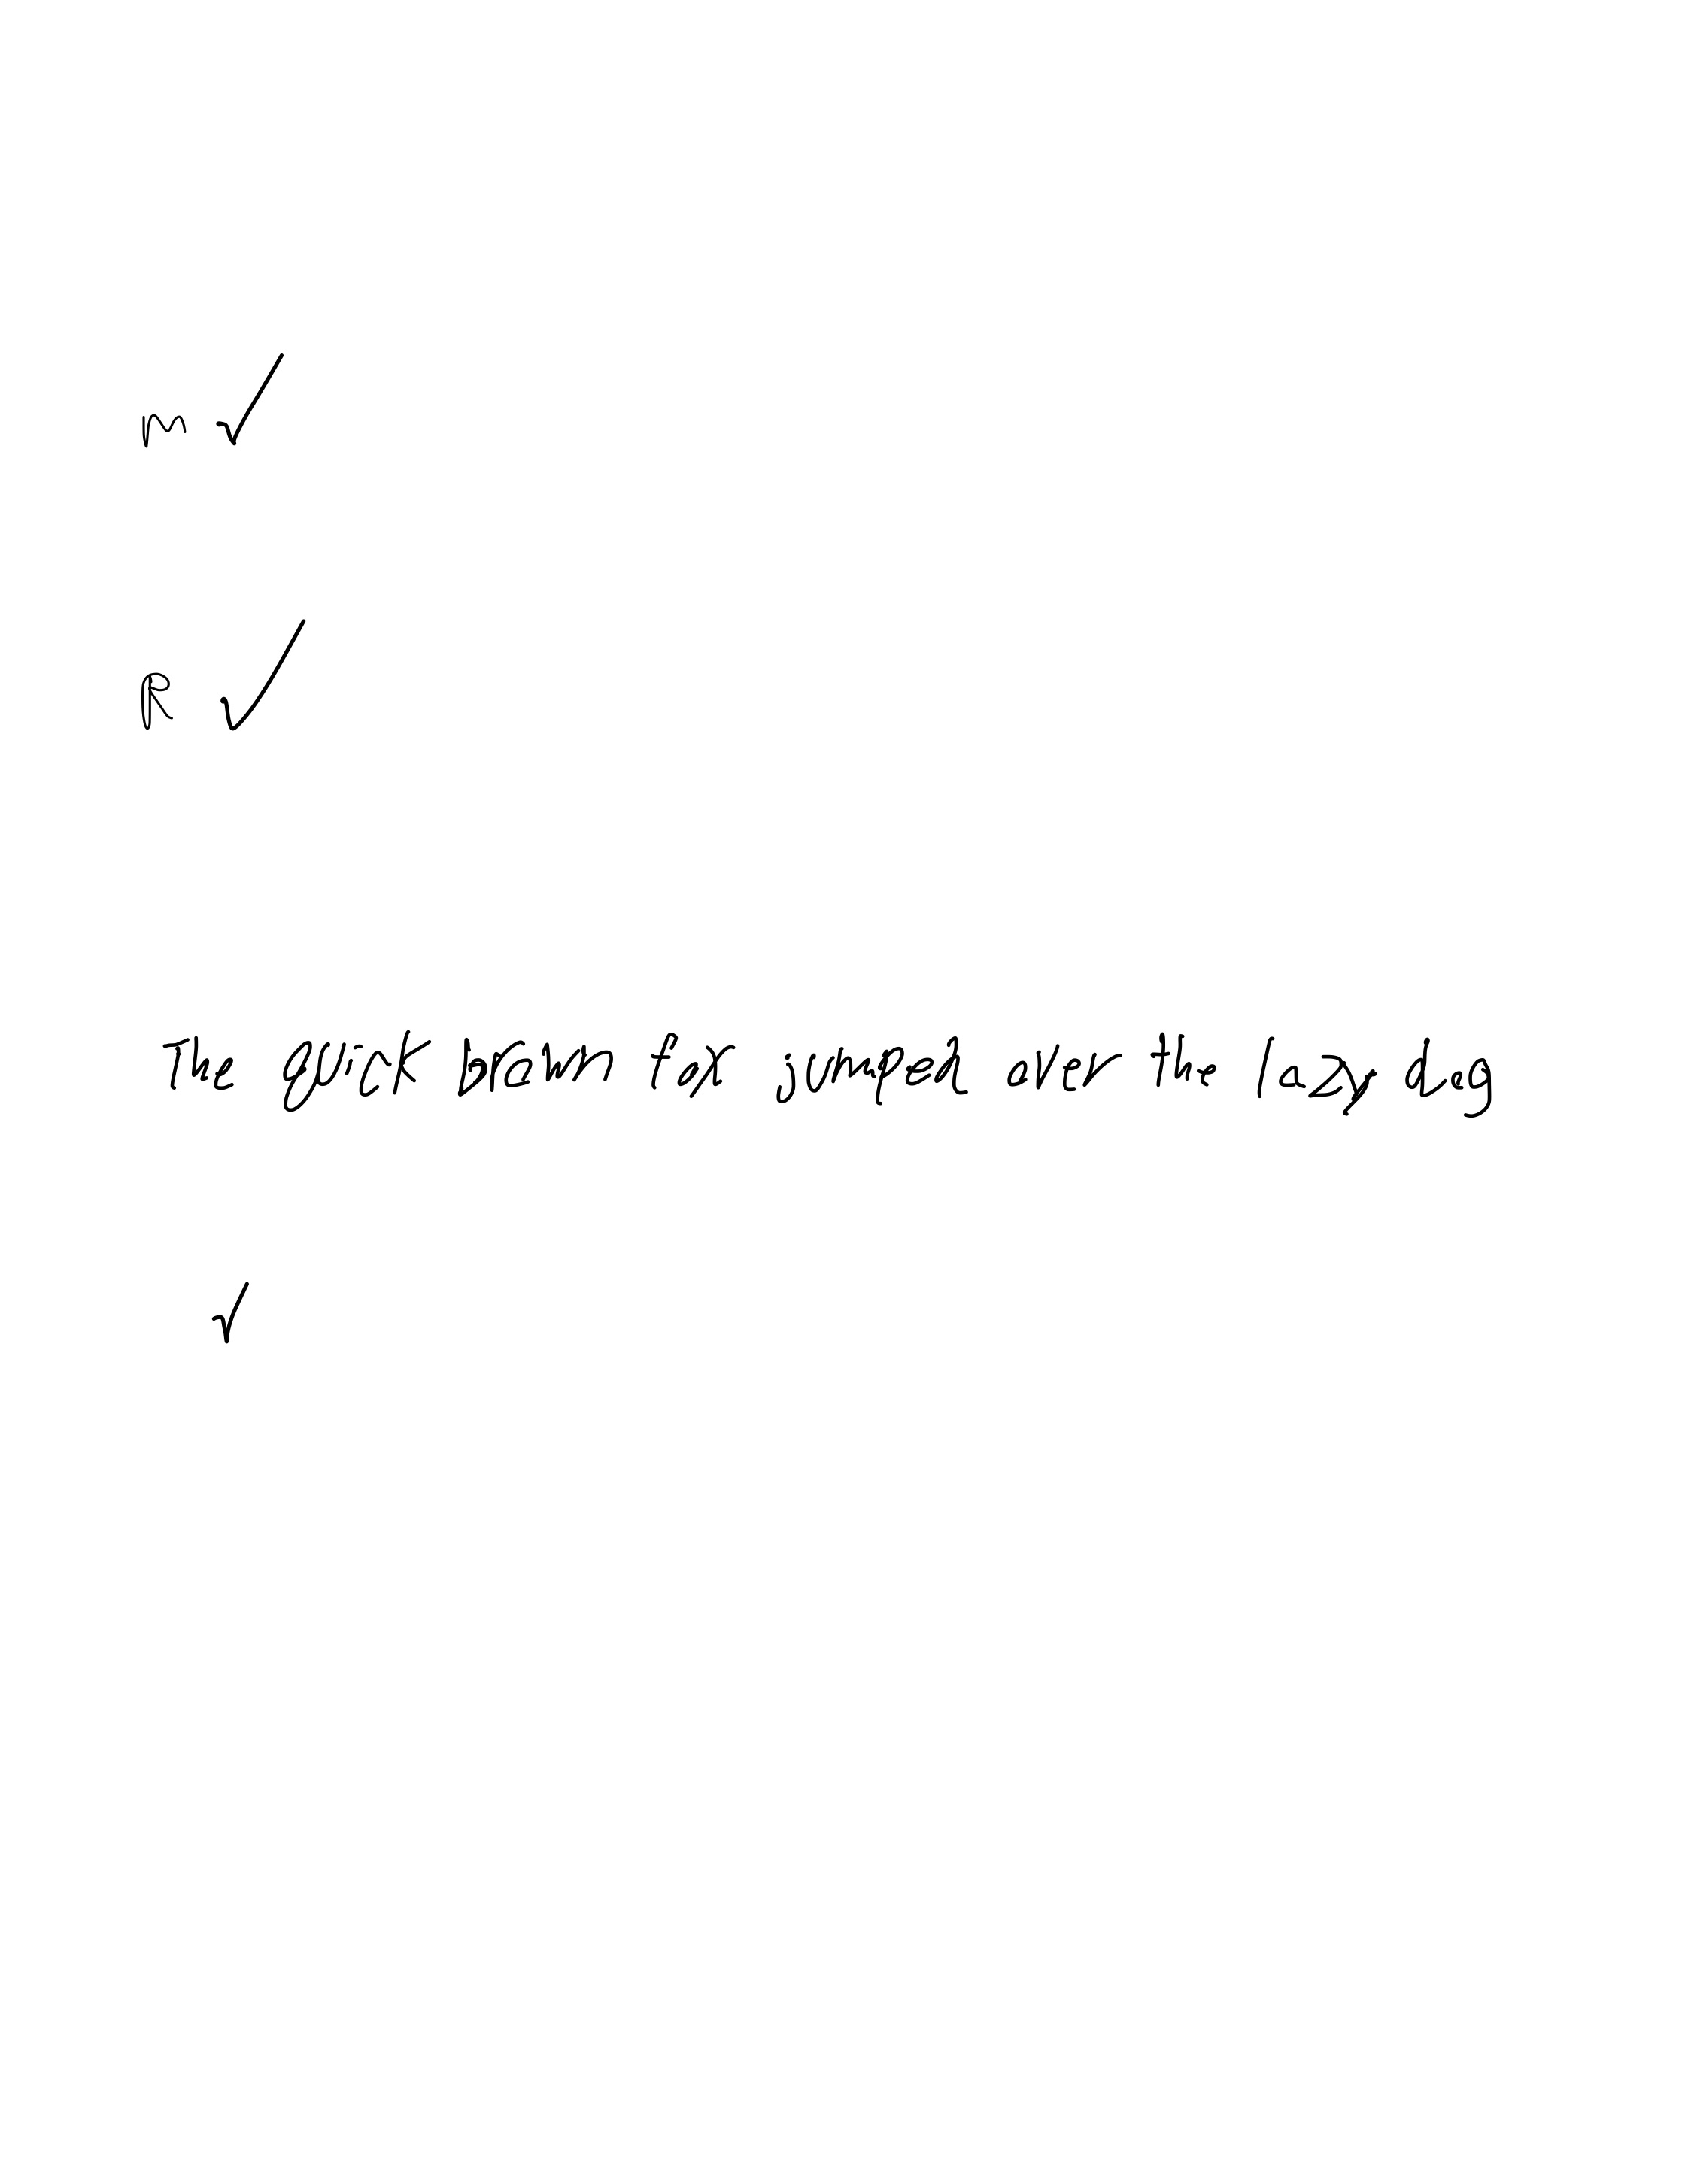 m ✓
R ✓
The quick brown fox jumped over the lazy dog
✓